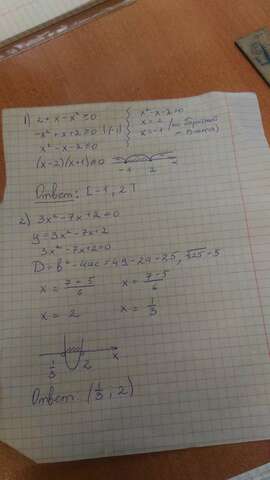 1) 2+x-x² ≥0
-x²+x+2≥0 |(-1)
x²-x-2≤0
(x-2)(x+1)≤0
x²-x-2=0
x=2
x=-1
-1 2
Ответ: [-1, 2]
2) 3x²-7x+2<0
y=3x²-7x+2
3x²-7x+2=0
D=b²-4ac=49-24=25, √25=5
x = 7+5/6 x = 7-5/6
x = 2 x = 1/3
1/3 2 x
Ответ: (1/3, 2)